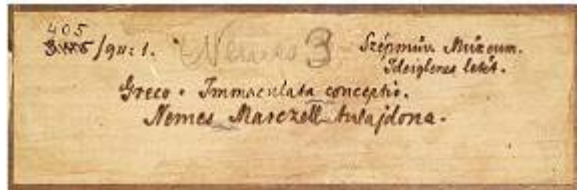 405
/911: 1. Nemes 3 Szépmüv. Múzeum.
Ideiglenes letét.
Greco. Immaculata conceptio.
Nemes Marczell tulajdona.